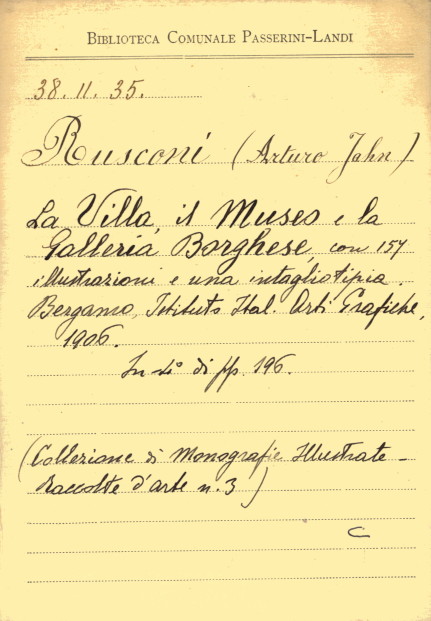 BIBLIOTECA COMUNALE PASSERINI-LANDI
38. 11. 35.
Rusconi (Arturo Jahn)
La Villa, il Museo e la
Galleria Borghese, con 157
illustrazioni e una intagliotipia.
Bergamo, Istituto Ital. Arti Grafiche,
1906.
In 4° di pp. 196.
(Collezione di Monografie Illustrate -
Raccolte d'arte n. 3)
C